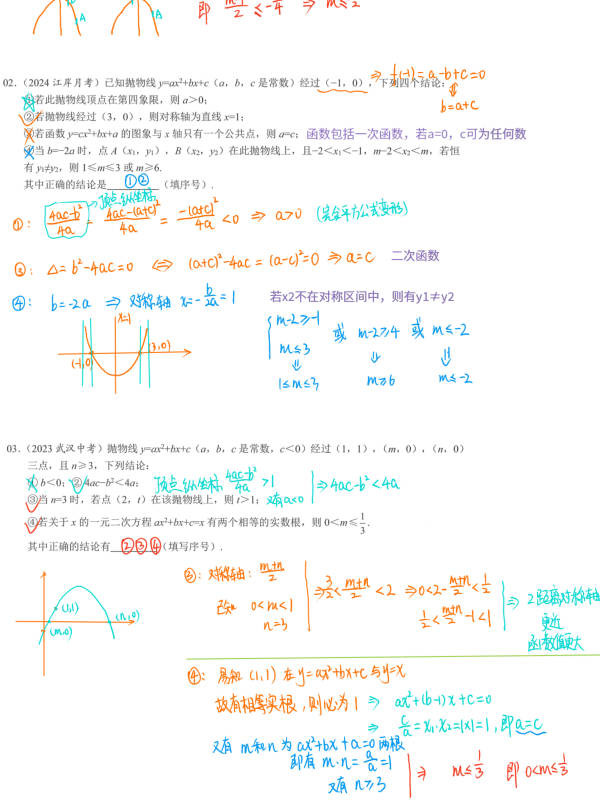 即 m+n/2 ≤ -n/4 ⇒ m≤2
A
A
02.（2024 江岸月考）已知抛物线 y=ax²+bx+c（a，b，c 是常数）经过（−1，0），下列四个结论：
⇒ f(-1)=a-b+c=0
⇓
b=a+c
①若此抛物线顶点在第四象限，则 a＞0；
②若抛物线经过（3，0），则对称轴为直线 x=1；
③若函数 y=cx²+bx+a 的图象与 x 轴只有一个公共点，则 a=c；
函数包括一次函数，若a=0，c可为任何数
④当 b=−2a 时，点 A（x₁，y₁），B（x₂，y₂）在此抛物线上，且−2＜x₁＜−1，m−2＜x₂＜m，若恒
有 y₁≠y₂，则 1≤m≤3 或 m≥6.
其中正确的结论是 ①② （填序号）.
→顶点纵坐标
①： 4ac-b²/4a = 4ac-(a+c)²/4a = -(a+c)²/4a <0 ⇒ a>0 (完全平方公式变形)
③： △=b²-4ac=0 ⇔ (a+c)²-4ac=(a-c)²=0 ⇒ a=c 二次函数
④： b=-2a ⇒ 对称轴 x=-b/2a=1 若x2不在对称区间中，则有y1≠y2
x=1
(-1,0) (3,0)
m-2≥-1 或 m-2≥4 或 m≤-2
m≤3 ⇓ ⇓
⇓
1≤m≤3 m≥6 m≤-2
03.（2023 武汉中考）抛物线 y=ax²+bx+c（a，b，c 是常数，c＜0）经过（1，1），（m，0），（n，0）
三点，且 n≥3，下列结论：
①b＜0；②4ac−b²＜4a； 顶点纵坐标 4ac-b²/4a >1 ⇒ 4ac-b²<4a
又有a<0
③当 n=3 时，若点（2，t）在该抛物线上，则 t＞1；
④若关于 x 的一元二次方程 ax²+bx+c=x 有两个相等的实数根，则 0＜m≤1/3.
其中正确的结论有 ②③④ （填写序号）.
(1,1)
(m,0)
(n,0)
③：对称轴：m+n/2 ⇒ 3/2<m+n/2<2 ⇒ 0<2-m+n/2<1/2
已知 0<m<1
n=3
1/2<m+n/2-1<1
⇒ 2距离对称轴
更近
函数值更大
④： 易知 (1,1) 在 y=ax²+bx+c 与 y=x
故有相等实根，则必为1 ⇒ ax²+(b-1)x+c=0
⇒ c/a=x₁·x₂=1×1=1，即a=c
又有 m和n 为 ax²+bx+a=0 两根
即有 m·n=a/a=1
又有 n≥3
⇒ m≤1/3 即 0<m≤1/3